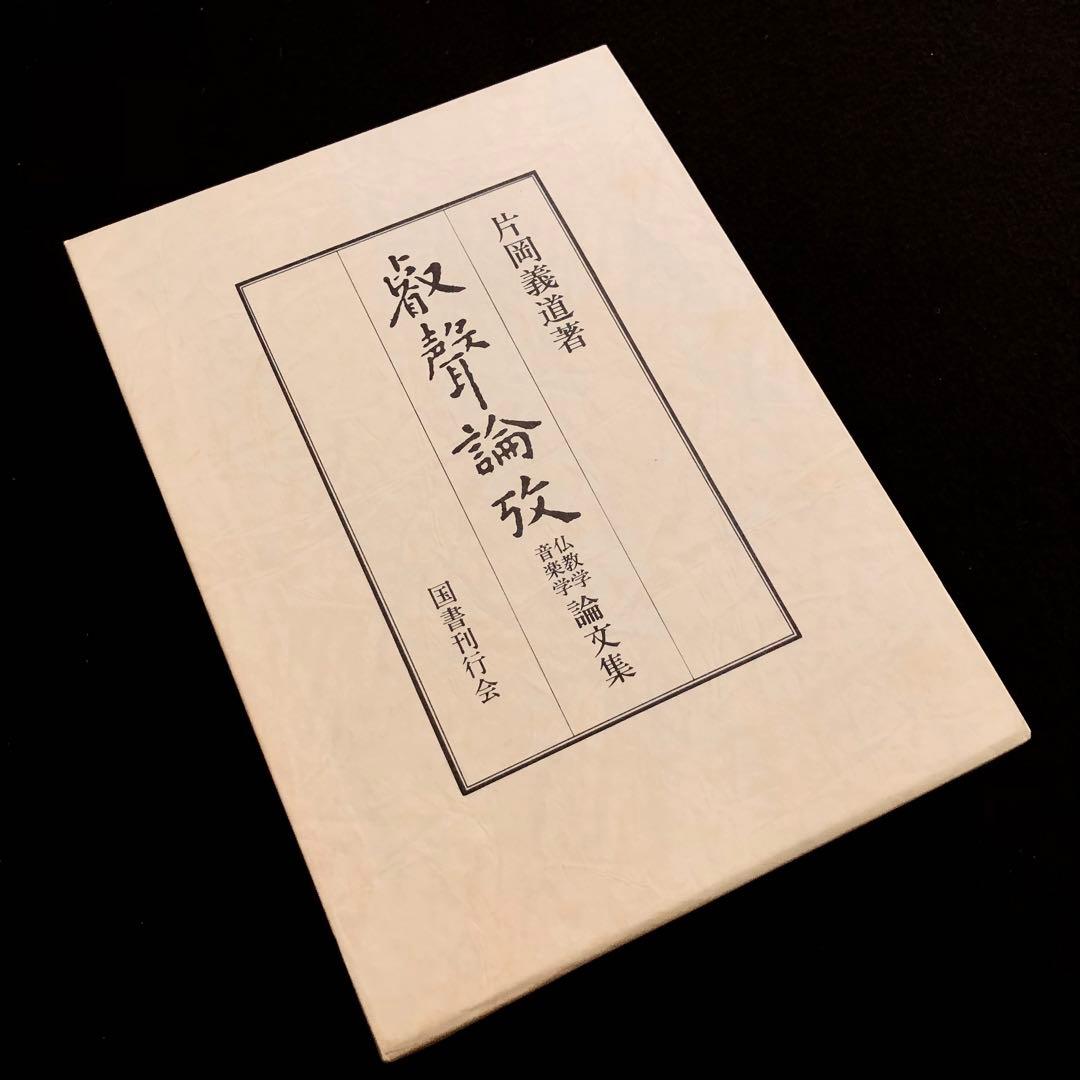 片岡義道著
叡聲論攷
仏教学
音楽学
論文集
国書刊行会